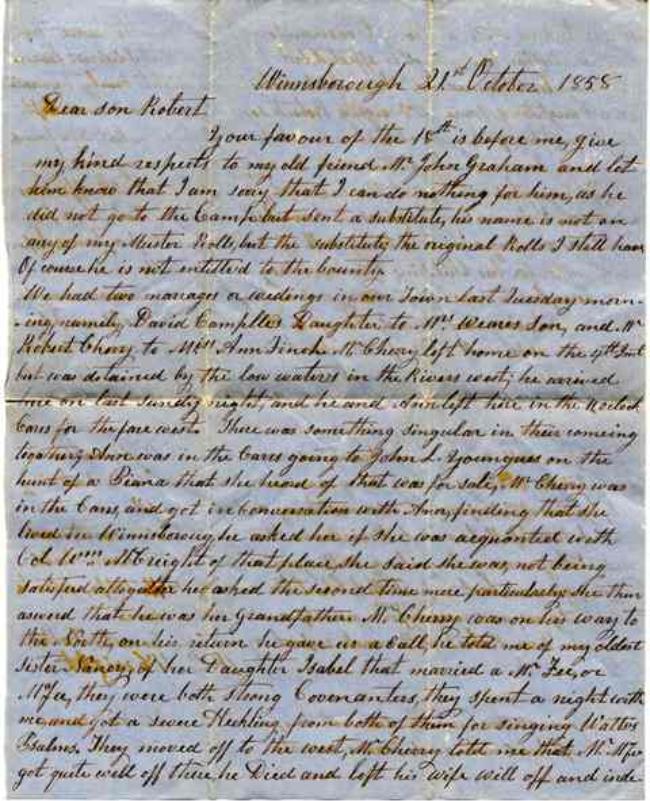 Winnsborough 21st October 1858
Dear son Robert
Your favour of the 18th is before me, give
my kind respects to my old friend Mr. John Graham and let
him know that I am sorry that I can do nothing for him, as he
did not go to the Camp but sent a substitute, his name is not on
any of my Muster Rolls, but the substitute, the original Rolls I still have
Of course he is not entitled to the bounty.
We had two marages or wedings in our Town last Tuesday morn-
-ing, namely, David Camplles Daughter to Mrs Weares Son, and Mr
Robert Chery to Miss Ann Finch. Mr Cherry left home on the 4th Inst
but was detained by the low waters in the Rivers west, he arrived
me on last Sundy night, and he and Ann left here in the oclock
Cares for the fare west. There was something singular in their comeing
together, Ann was in the Cares going to John L. Youngues on the
hunt of a Piana that she heard of that was for sale, Mr Cherry was
in the Cars, and got in conversation with Ann, finding that she
lived in Winnsborough, he asked her if she was acquanted with
Col Wm. McCreight of that place, she said she was, not being
satisfied altogather he asked the second time more particularly she then
aswerd that he was her Grandfather Mr. Cherry was on his way to
the North, on his return he gave us a Call, he told me of my oldest
Sister Nancy, of her Daughter Isabel that married a Mr. Fee, or
McFee, they were both strong Covenanters, they spent a night with
me and got a severe Heckling from both of them for singing Watts's
Psalms. They moved off to the west, Mr Cherry told me that Mr. McFee
got quite well off there he Died and left his wife well off and inde